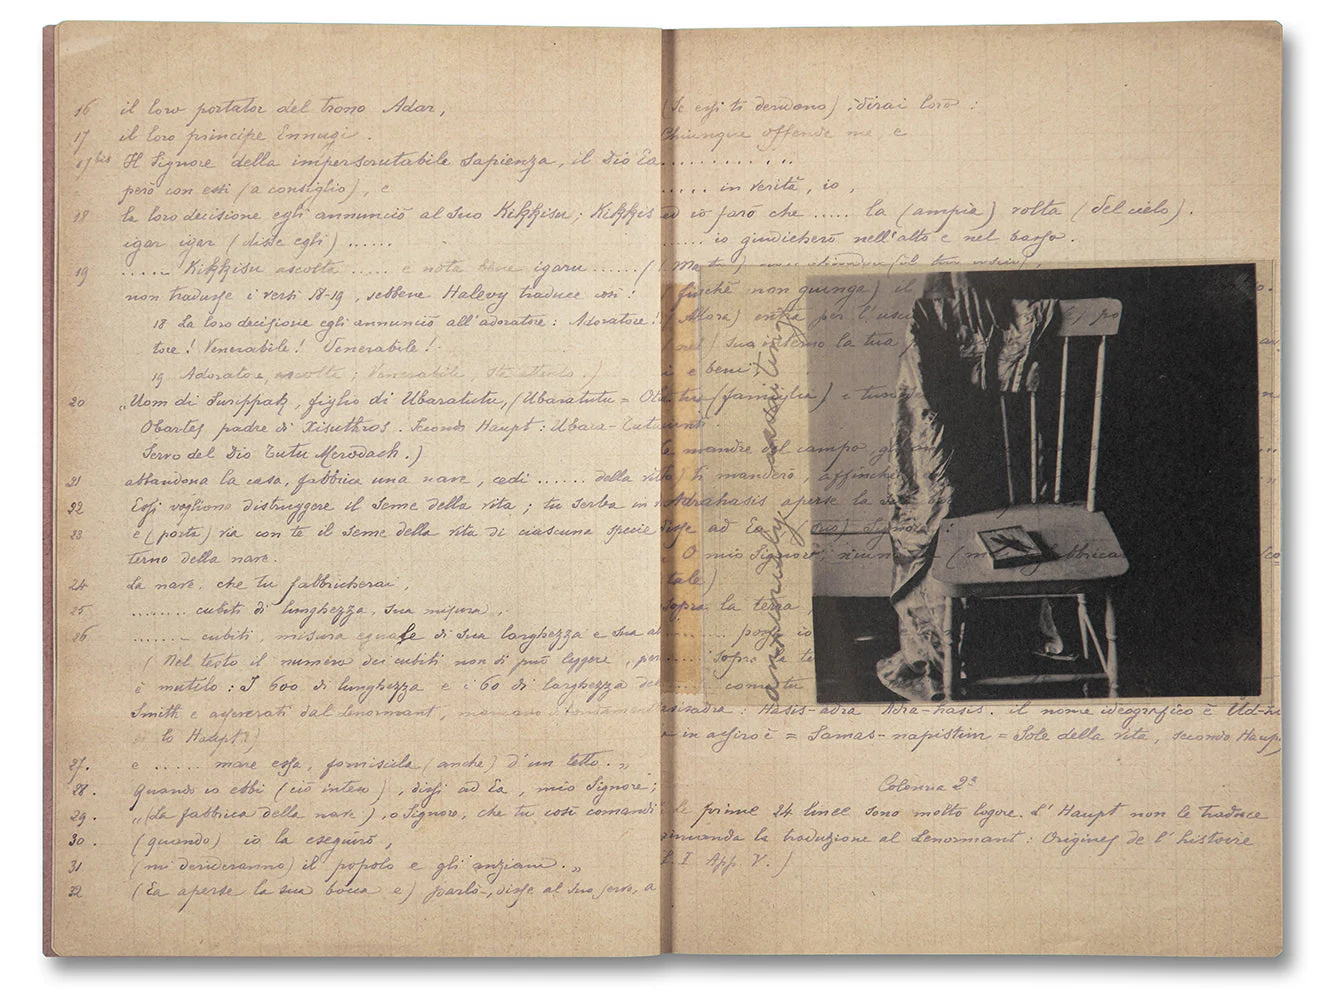 16 il loro portator del trono Adar,
17 il loro principe Ennugi.
17 bis Il Signore della imperscrutabile sapienza, il Dio Ea
però con essi (a consiglio), e
18 la loro decisione egli annunciò al suo Kikkisu: Kikkis
igar igar (disse egli) ......
19 ...... Kikkisu ascolta ..... e nota bene igaru ...... (
non tradusse i versi 18-19, sebbene Halevy traduce così:
18 La loro decisione egli annunciò all'adoratore: Adoratore!
tore! Venerabile! Venerabile!
19 Adoratore, ascolta; Venerabile, sta attento.)
20 „Uom di Surippak, figlio di Ubaratutu, (Ubaratutu =
Obartes padre di Xisuthros. Secondo Haupt: Ubara-Tutu
servo del Dio Tutu Merodach.)
21 abbandona la casa, fabbrica una nave, cedi ...... della vita
22 Essi vogliono distruggere il seme della vita; tu serba in
23 e (porta) via con te il seme della vita di ciascuna specie
terno della nave.
24 La nave, che tu fabbricherai,
25 ........ cubiti di lunghezza, sua misura,
26 ........ cubiti, misura eguale di sua larghezza e sua al
(Nel testo il numero dei cubiti non si può leggere, per
è mutilo: I 600 di lunghezza e i 60 di larghezza
Smith e asseverati dal Lenormant,
lo Haupt)
27. e ...... mare essa, forniscila (anche) d'un tetto.„
28. Quando io ebbi (ciò inteso), dissi ad Ea, mio Signore;
29. „(La fabbrica della nave), o Signore, che tu così comandi
30. (quando) io la eseguirò,
31 (mi derideranno) il popolo e gli anziani.„
32 (Ea aperse la sua bocca e) parlò, disse al suo servo, a
(Se essi ti deridono), dirai loro:
Chiunque offende me, e
...........
..... in verità, io,
ed io farò che ..... la (ampia) volta (del cielo).
...... io giudicherò nell'alto e nel basso.
(Ma tu)
(finchè non giunga) il
(Allora) entra per l'
(nel) suo interno la tua
i e beni
(famiglia) e
le mandre del campo, gli
ti manderò, affinchè
Adrahasis aperse la s
disse ad Ea (suo) Signore:
O mio Signore, fabbrica
tale)
sopra la terra,
....... io
...... sopra
...... come tu
anxiously awaiting
Hasis-adra Adra-hasis. il nome ideografico è Ud-
in assiro è = Samas-napistim = Sole della vita, secondo Haup
Colonna 2ª
le prime 24 linee sono molto logore. L'Haupt non le traduce
rimanda la traduzione al Lenormant: Origines de l'histoire
I App. V.)